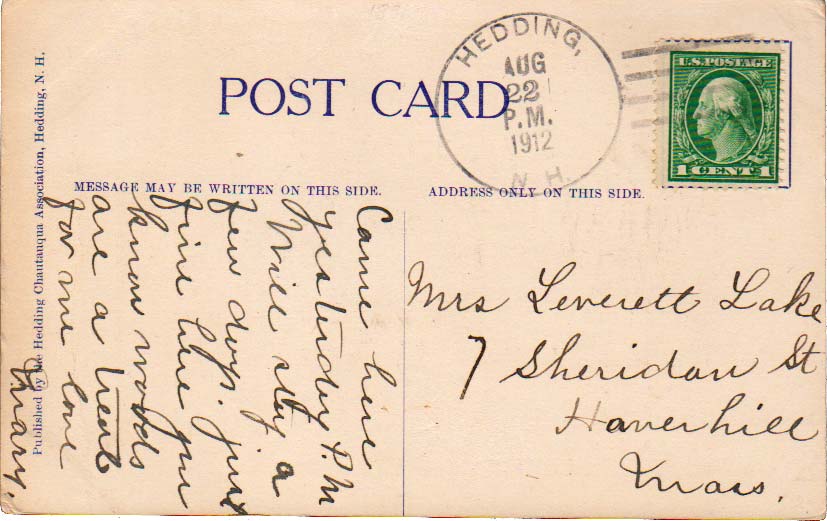 POST CARD
HEDDING,
AUG
22
P.M.
1912
N.H.
U.S. POSTAGE
1 CENT 1
MESSAGE MAY BE WRITTEN ON THIS SIDE.
ADDRESS ONLY ON THIS SIDE.
Came here
yesterday P.M
Will stay a
few days. just
fine here you
know woods
are a treat
for me love
Mary.
Mrs Leverett Lake
7 Sheridan St
Haverhill
Mass.
Published by the Hedding Chautauqua Association, Hedding, N. H.